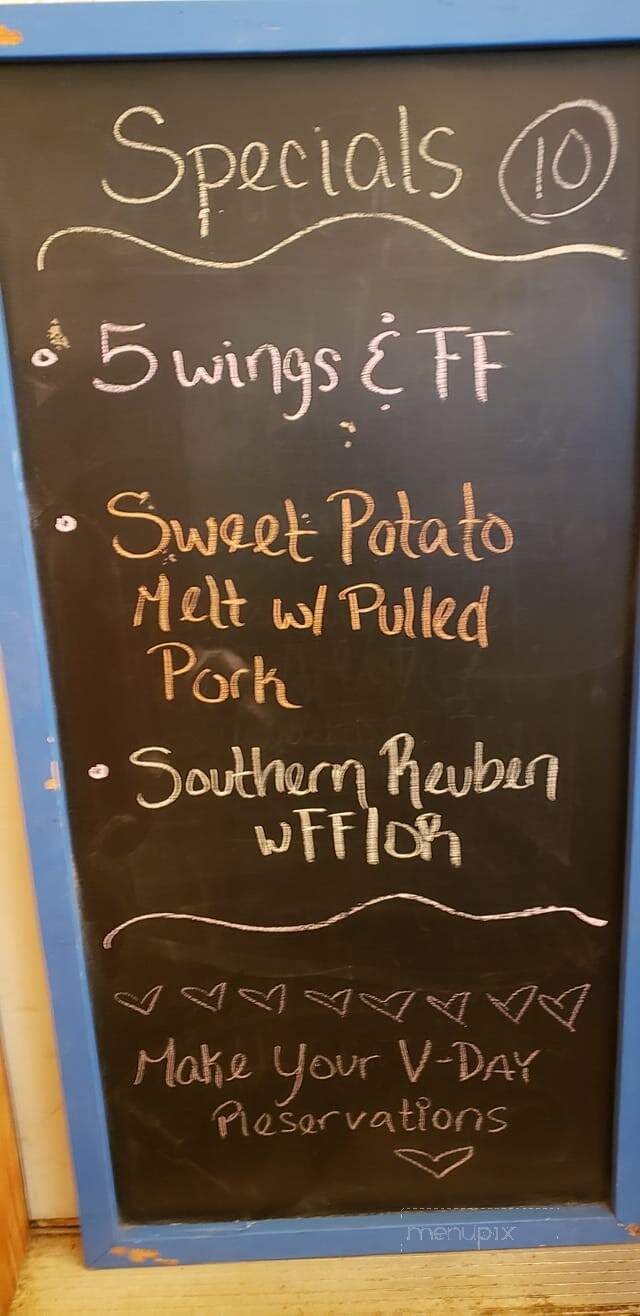 Specials 10
5 wings & FF
Sweet Potato
Melt w/ Pulled
Pork
Southern Reuben
wFF | OR
Make Your V-DAY
Reservations
menupix